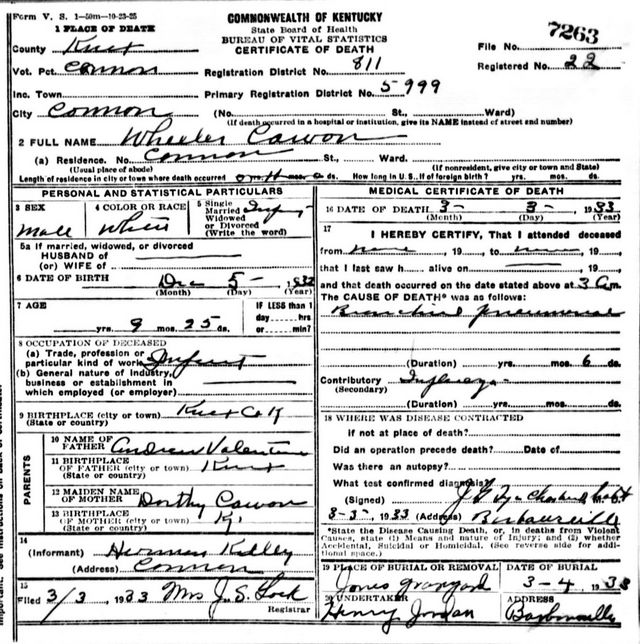 Form V. S. 1-50m-10-23-25
COMMONWEALTH OF KENTUCKY
State Board of Health
BUREAU OF VITAL STATISTICS
CERTIFICATE OF DEATH
7263
1 PLACE OF DEATH
County Knox
File No.
Vot. Pct. Connon
Registration District No. 811
Registered No. 22
Inc. Town
Primary Registration District No. 5999
City Connon
(No. St., Ward)
(If death occurred in a hospital or institution, give its NAME instead of street and number)
2 FULL NAME Wheeler Cawon
(a) Residence. No. Connon St., Ward.
(Usual place of abode) (If nonresident, give city or town and State)
Length of residence in city or town where death occurred mos. ds. How long in U.S., if of foreign birth? yrs. mos. ds.
PERSONAL AND STATISTICAL PARTICULARS
3 SEX
Male
4 COLOR OR RACE
White
5 Single
Married
Widowed
or Divorced
(Write the word)
5a If married, widowed, or divorced
HUSBAND of
(or) WIFE of
6 DATE OF BIRTH Dec 5- 1932
(Month) (Day) (Year)
7 AGE
yrs. 9 mos. 25 ds.
IF LESS than 1
day hrs
or min?
8 OCCUPATION OF DECEASED
(a) Trade, profession or
particular kind of work Infant
(b) General nature of industry,
business or establishment in
which employed (or employer)
9 BIRTHPLACE (city or town) Knox Co K
(State or country)
PARENTS
10 NAME OF
FATHER Andrew Valentine
11 BIRTHPLACE
OF FATHER (city or town) Knox
(State or country)
12 MAIDEN NAME
OF MOTHER Dorthy Cawon
13 BIRTHPLACE
OF MOTHER (city or town) Ky
(State or country)
14
(Informant) Herman Kelley
(Address) Connon
15
Filed 3/3 1933 Mrs J. S. Lock
Registrar
MEDICAL CERTIFICATE OF DEATH
16 DATE OF DEATH 3- 3- 1933
(Month) (Day) (Year)
17
I HEREBY CERTIFY, That I attended deceased
from none, 19 to, 19
that I last saw h alive on, 19
and that death occurred on the date stated above at 3 am.
The CAUSE OF DEATH* was as follows:
Bronchial pneumonia
(Duration) yrs. mos. 6 ds.
Contributory Influenza
(Secondary)
(Duration) yrs. mos. ds.
18 WHERE WAS DISEASE CONTRACTED
If not at place of death?
Did an operation precede death? Date of
Was there an autopsy?
What test confirmed diagnosis?
(Signed)
3-3- 1933 (Address) Barbourville
*State the Disease Causing Death, or, in deaths from Violent
Causes, state (1) Means and nature of Injury; and (2) whether
Accidental, Suicidal or Homicidal. (See reverse side for addi-
tional space.)
19 PLACE OF BURIAL OR REMOVAL
Jones Graveyard
DATE OF BURIAL
3-4 1933
20 UNDERTAKER
Henry Jordan
ADDRESS
Barbourville